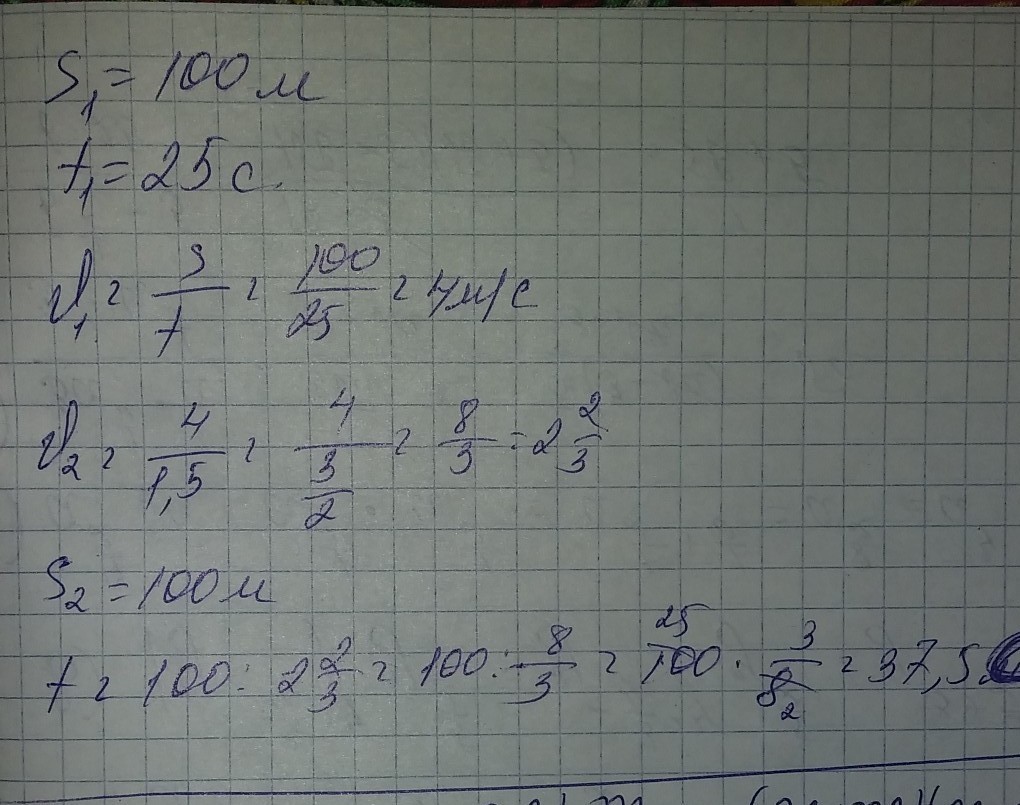 S₁ = 100 м
t₁ = 25 с.
v₁ = s/t = 100/25 = 4 м/с
v₂ = 4/1,5 = 4/(3/2) = 8/3 = 2 2/3
S₂ = 100 м
t = 100 : 2 2/3 = 100 : 8/3 = 100 25 · 3/8 2 = 37,5